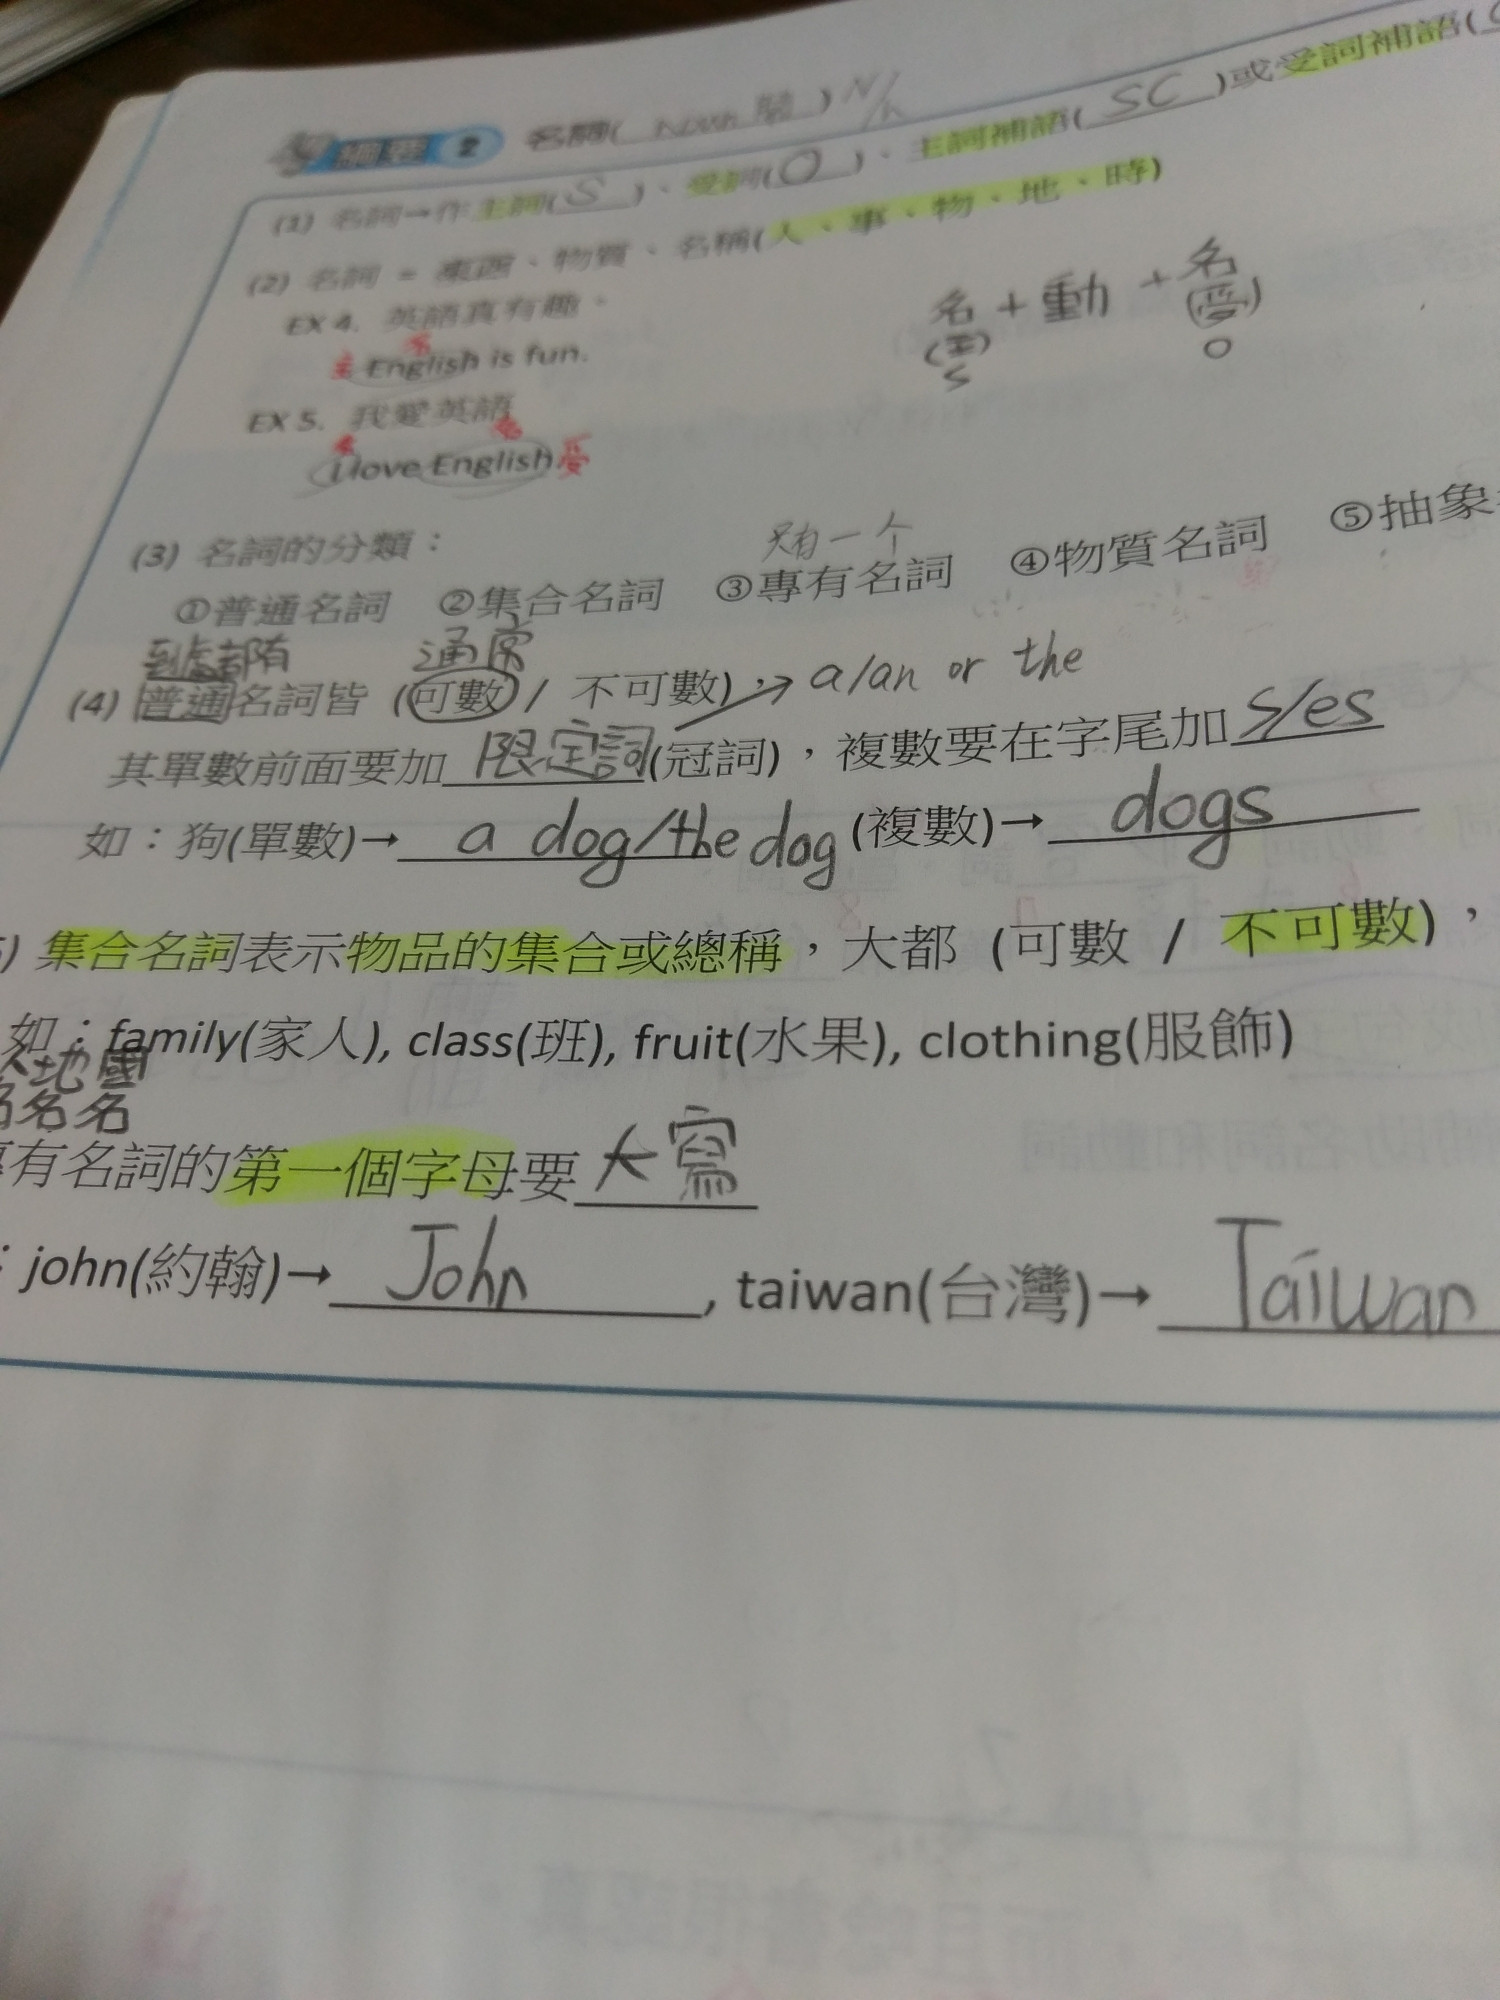 綱要 2 名詞( Noun ) N/n
(1) 名詞→作主詞( S )、受詞( O )、主詞補語( SC )或受詞補語(
(2) 名詞 = 東西、物質、名稱(人、事、物、地、時)
EX 4. 英語真有趣。
名
主 English is fun.
名 + 動 + 名
(主) (受)
S O
EX 5. 我愛英語
名
I love English 受
(3) 名詞的分類：
只有一个
①普通名詞 ②集合名詞 ③專有名詞 ④物質名詞 ⑤抽象
到處都有 通常
(4) 普通名詞皆 (可數 / 不可數)， → a/an or the
其單數前面要加 限定詞 (冠詞)，複數要在字尾加 s/es
如：狗(單數)→ a dog/the dog (複數)→ dogs
) 集合名詞表示物品的集合或總稱，大都 (可數 / 不可數)，
如：family(家人), class(班), fruit(水果), clothing(服飾)
人地國
名名名
有名詞的第一個字母要 大寫
：john(約翰)→ John , taiwan(台灣)→ Taiwan